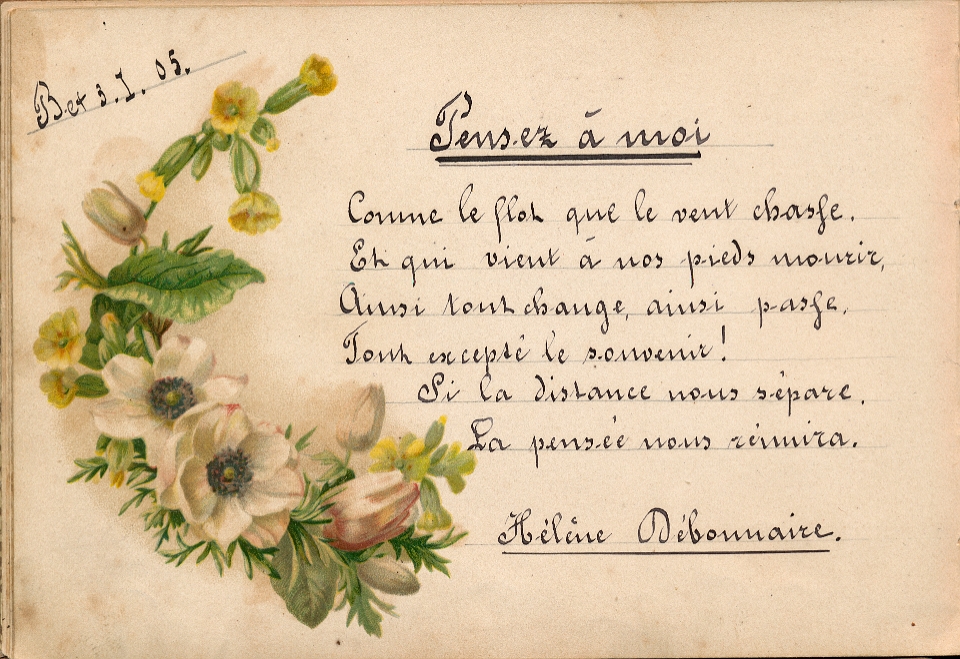 Bet 3.I.05.
Pensez à moi
Comme le flot que le vent chasse.
Et qui vient à nos pieds mourir,
Ainsi tout change, ainsi passe.
Tout excepté le souvenir!
Si la distance nous sépare.
La pensée nous réunira.
Hélène Débonnaire.